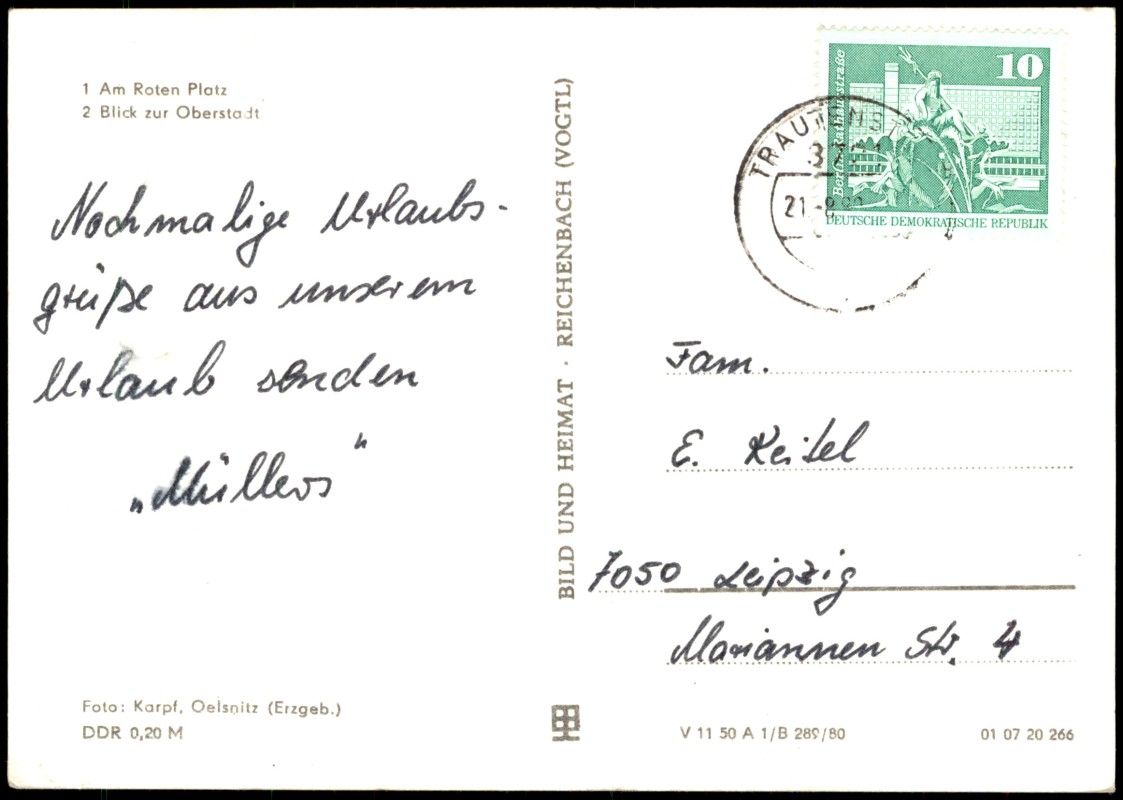 1 Am Roten Platz
2 Blick zur Oberstadt
Nochmalige Urlaubs-
grüße aus unserem
Urlaub senden
„Müllers"
Foto: Karpf, Oelsnitz (Erzgeb.)
DDR 0,20 M
BILD UND HEIMAT · REICHENBACH (VOGTL)
10
Berlin, Rathausstraße
DEUTSCHE DEMOKRATISCHE REPUBLIK
21.-8.
Fam.
E. Keitel
7050 Leipzig
Mariannen Str. 4
V 11 50 A 1/B 289/80
01 07 20 266